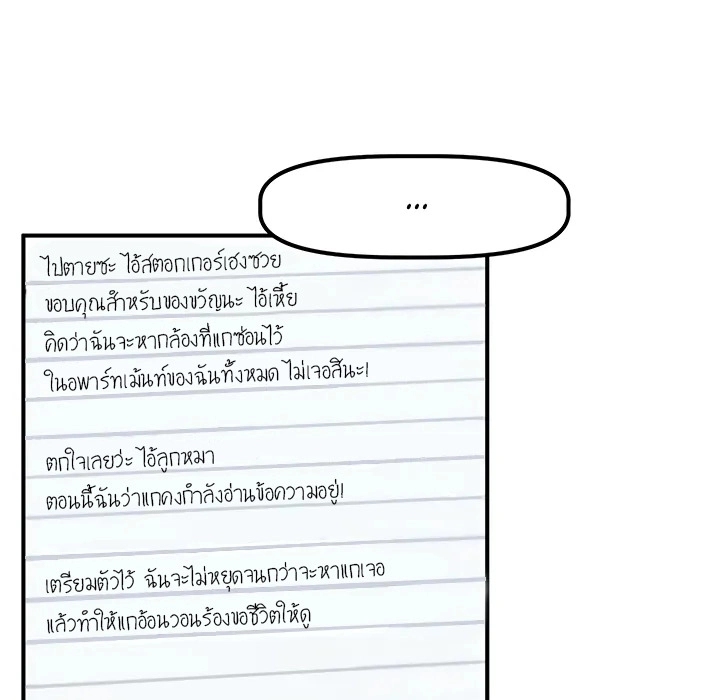 ...
ไปตายซะ ไอ้สตอกเกอร์เฮงซวย
ขอบคุณสำหรับของขวัญนะ ไอ้เหี้ย
คิดว่าฉันจะหากล้องที่แกซ่อนไว้
ในอพาร์ทเม้นท์ของฉันทั้งหมด ไม่เจอสินะ!
ตกใจเลยว่ะ ไอ้ลูกหมา
ตอนนี้ฉันว่าแกคงกำลังอ่านข้อความอยู่!
เตรียมตัวไว้ ฉันจะไม่หยุดจนกว่าจะหาแกเจอ
แล้วทำให้แกอ้อนวอนร้องขอชีวิตให้ดู